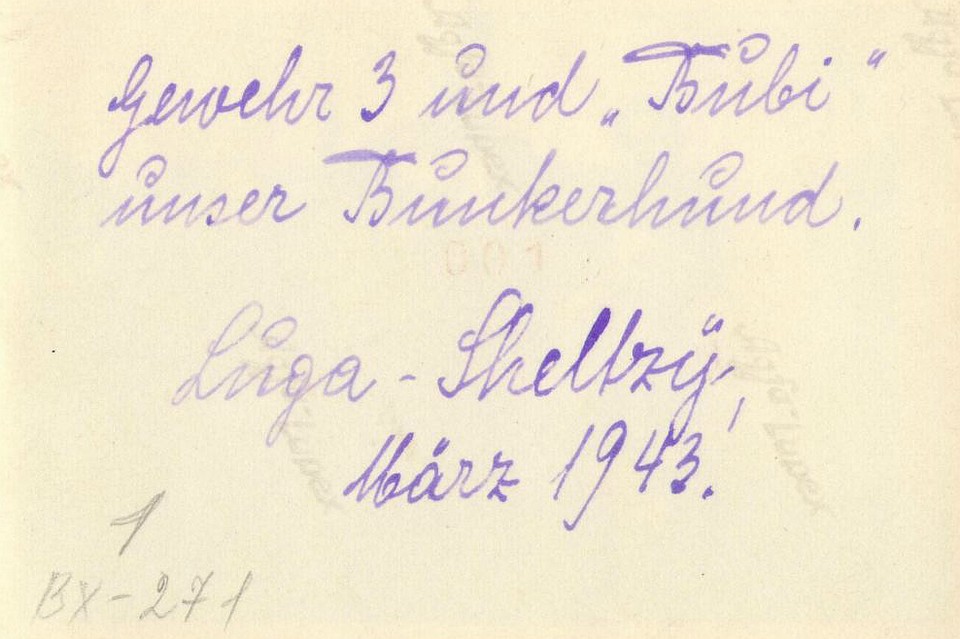 Gewehr 3 und „Bubi"
unser Bunkerhund.
Luga - Skeltzÿ,
März 1943.
1
BX-271